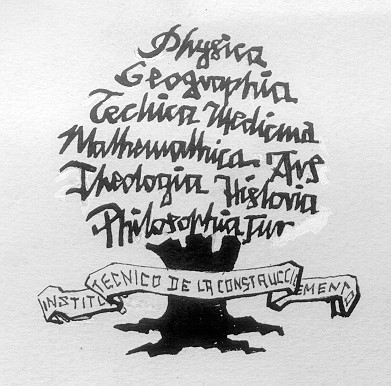 Physica
Geographia
Technica Medicina
Mathemathica. Ars
Theologia Historia
Philosophia Jur
TECNICO DE LA CONSTRUCCIO
INSTITU
EMENTO